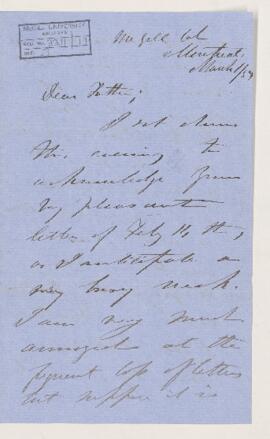 McGILL UNIVERSITY
ARCHIVES
McGill Col
Montreal,
March 1/
Dear Father,
I sit down
this evening to
acknowledge yours
very pleasant
letter of Feby 16th,
as I anticipate a
very busy week.
I am very much
annoyed at the
frequent loss of letters
but suppose it is